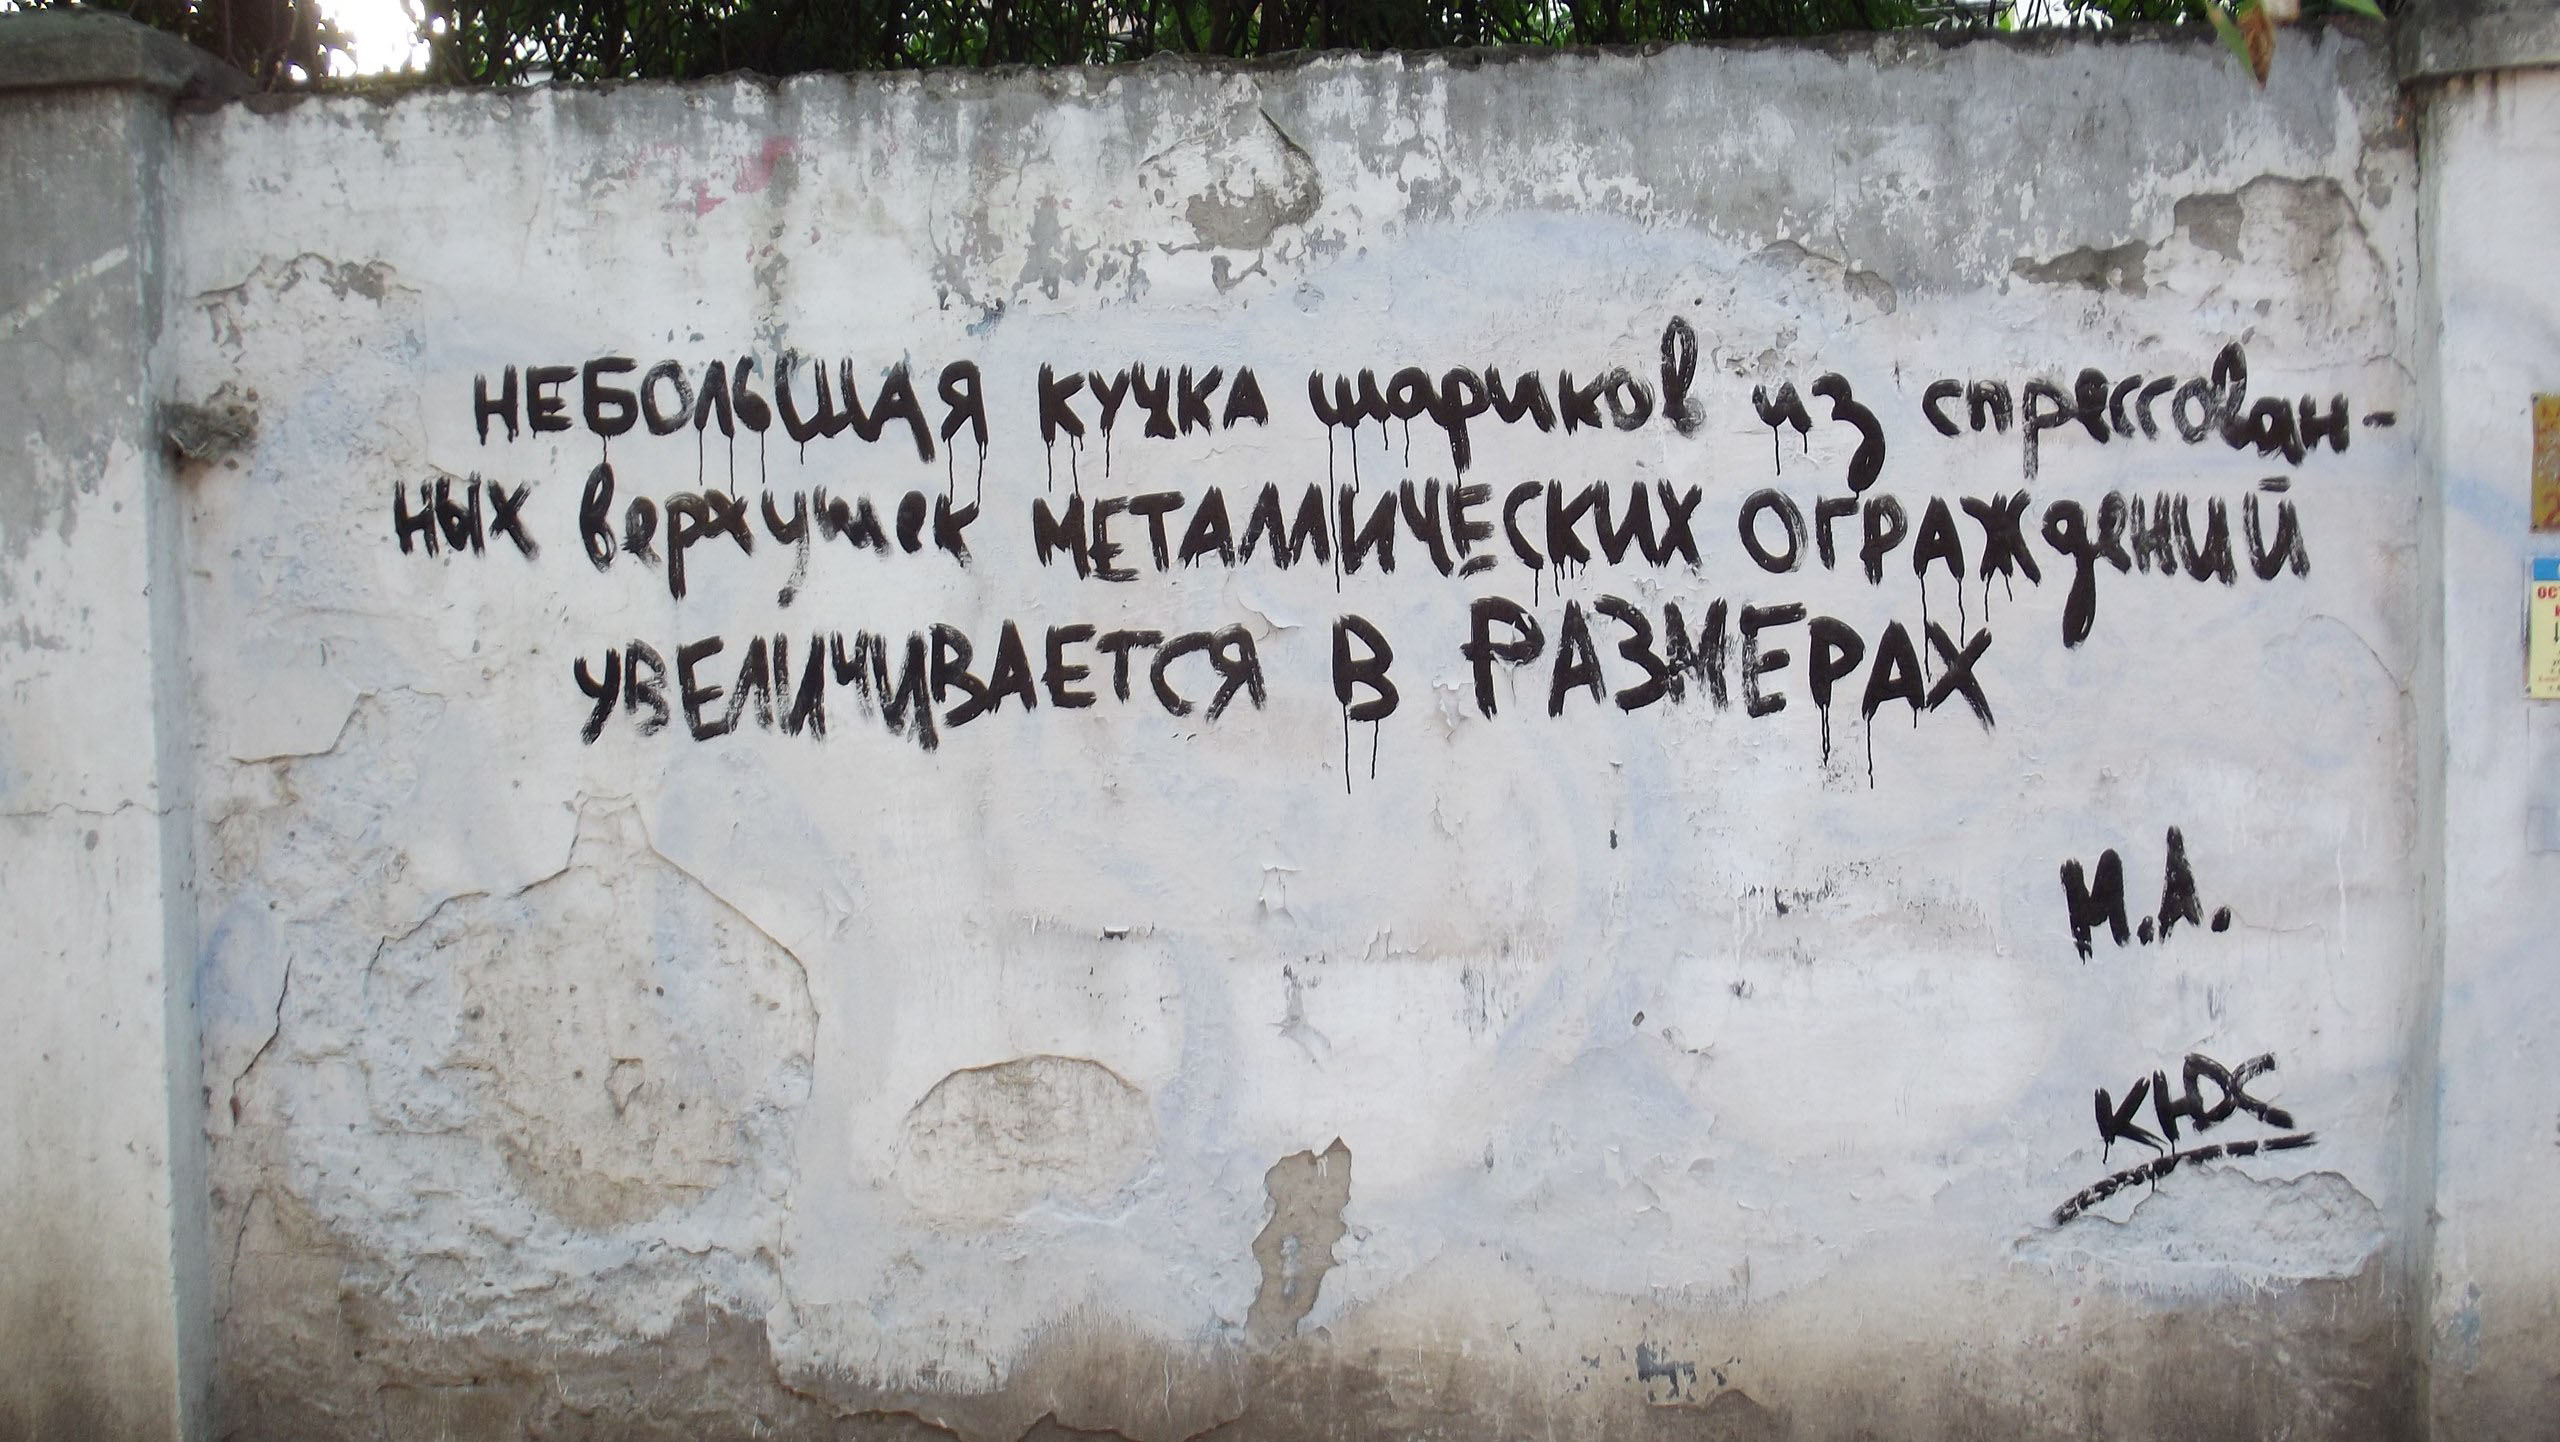 НЕБОЛЬШАЯ КУЧКА шариков из спрессован-
ных верхушек МЕТАЛЛИЧЕСКИХ ОГРАЖдЕНИЙ
УВЕЛИЧИВАЕТСЯ В РАЗМЕРАХ
М.А.